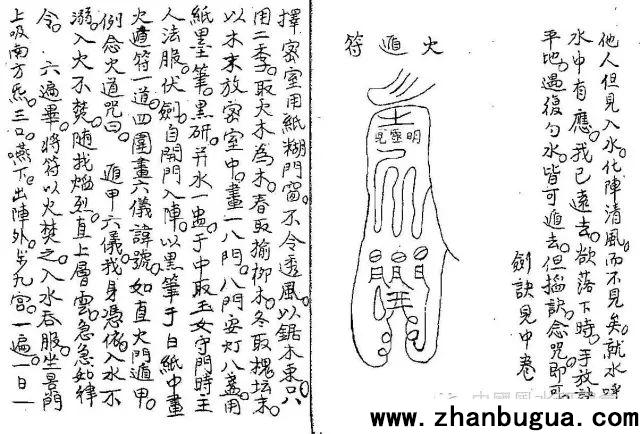 他人但見入水化陣清風而不見矣就水呼
水中有應我已遠去欲落下時手放訣
平地遇復勺水皆可遁去但掐訣念咒即可
劍訣見中卷
火遁符
明
日月
擇密室用紙糊門窗不令透風以鋸木東八
用二季取天木為木春取榆柳木冬取槐坛末
以木末放密室中畫一八門八門安灯八盞用
紙墨筆黑研并水一盅于中取玉女守門時主
人法服伏劍自開門入陣以黑筆于白紙中畫
火遁符一道四圍畫六儀諱號如直火門遁甲
例念火遁咒曰 遁甲六儀我身憑依入水不
溺入火不焚随我焰烈直上層雲急急如律
令 六遍畢將符以火焚之入水吞服坐景門
上吸南方炁三口嚥下出陣外步九宮一遍一日一
中國風水
www.zhanbugua.com